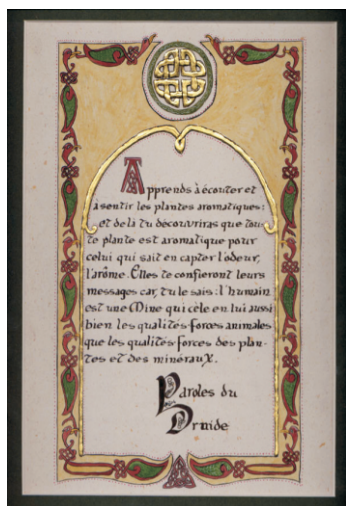 Apprends à écouter et
à sentir les plantes aromatiques :
et de là tu découvriras que tou-
te plante est aromatique pour
celui qui sait en capter l'odeur,
l'arôme. Elles te confieront leurs
messages car, tu le sais : l'humain
est une Mine qui cèle en lui aussi
bien les qualités-forces animales
que les qualités-forces des plan-
tes et des minéraux.
Paroles du
Druide